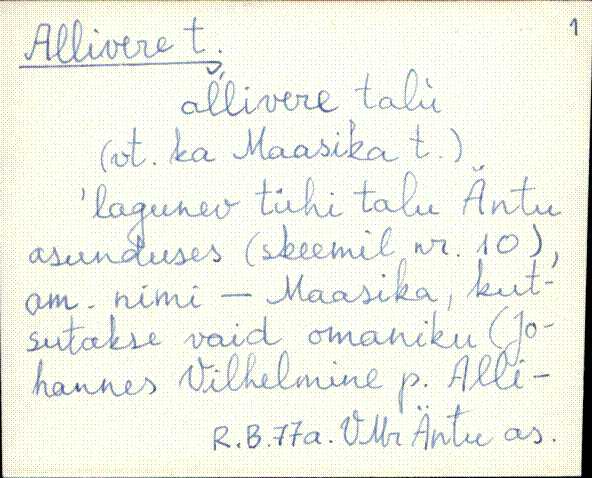 1
Allivere t.
al̆livere, talù
(vt. ka Maasika t.)
'lagunev tühi talu Äntu
asunduses (skeemil nr. 10),
am. nimi – Maasika, kut-
sutakse vaid omaniku (Jo-
hannes Vilhelmine p. Alli-
R.B.77a. VMr Äntu as.